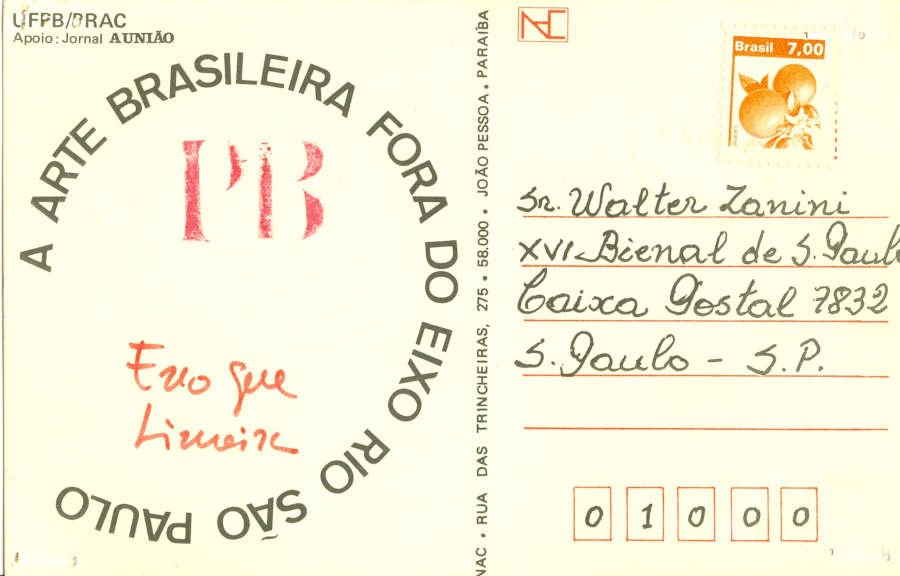 UFPB/PRAC
Apoio: Jornal A UNIÃO
A ARTE BRASILEIRA FORA DO EIXO RIO SÃO PAULO
PB
Limeira
NAC • RUA DAS TRINCHEIRAS, 275 • 58.000 • JOÃO PESSOA • PARAÍBA
NAC
Brasil 7,00
Sr. Walter Zanini
XVI Bienal de S. Paulo
Caixa Postal 7832
S. Paulo - S.P.
0 1 0 0 0